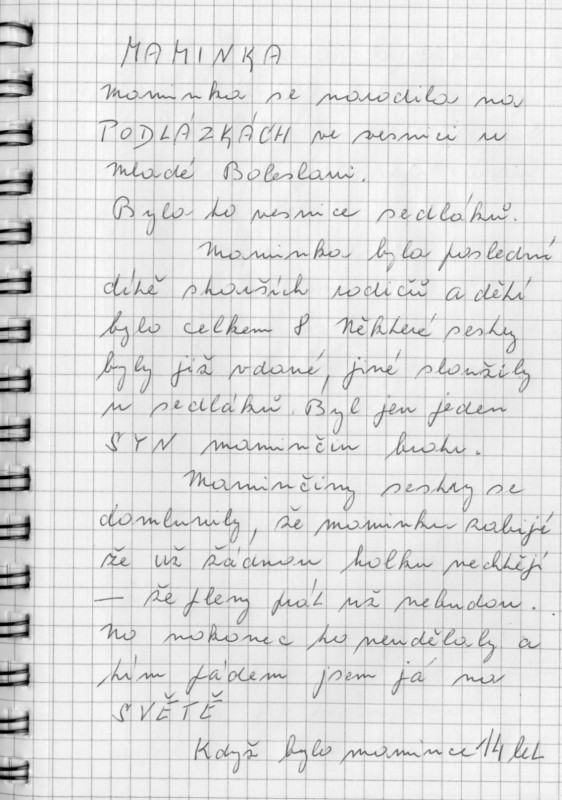 MAMINKA
Maminka se narodila na
PODLÁZKÁCH ve vesnici u
Mladé Boleslavi.
Byla to vesnice sedláků.
Maminka byla poslední
dítě starších rodičů a dětí
bylo celkem 8 Některé sestry
byly již vdané, jiné sloužily
u sedláků. Byl jen jeden
SYN maminčin bratr.
Maminčiny sestry se
domluvily, že maminku zabijí
že už žádnou holku nechtějí
— že pleny prát už nebudou.
No nakonec to neudělaly a
tím pádem jsem já na
SVĚTĚ
Když bylo mamince 14 let